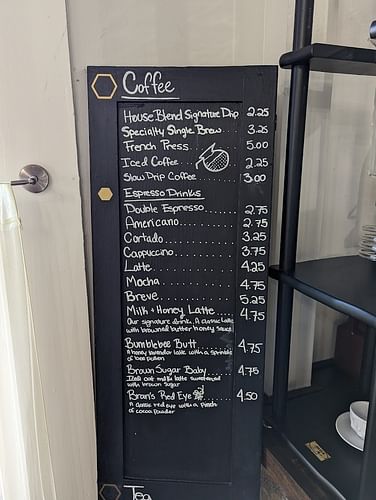 Coffee
House Blend Signature Drip 2.25
Specialty Single Brew.... 3.25
French Press....... 5.00
Iced Coffee....... 2.25
Slow Drip Coffee..... 3.00
Espresso Drinks
Double Espresso....... 2.75
Americano............ 2.75
Cortado............ 3.25
Cappuccino......... 3.75
Latte............. 4.25
Mocha ............ 4.75
Breve ............ 5.25
Milk + Honey Latte.... 4.75
Our signature drink. A classic latte
with browned butter honey sauce.
Bumblebee Butt...... 4.75
A honey lavender latte with a sprinkle
of bee pollen
Brown Sugar Baby..... 4.75
Iced oat milk latte sweetened
with brown sugar
Bran's Red Eye ..... 4.50
A classic red eye with a pinch
of cocoa powder
Tea